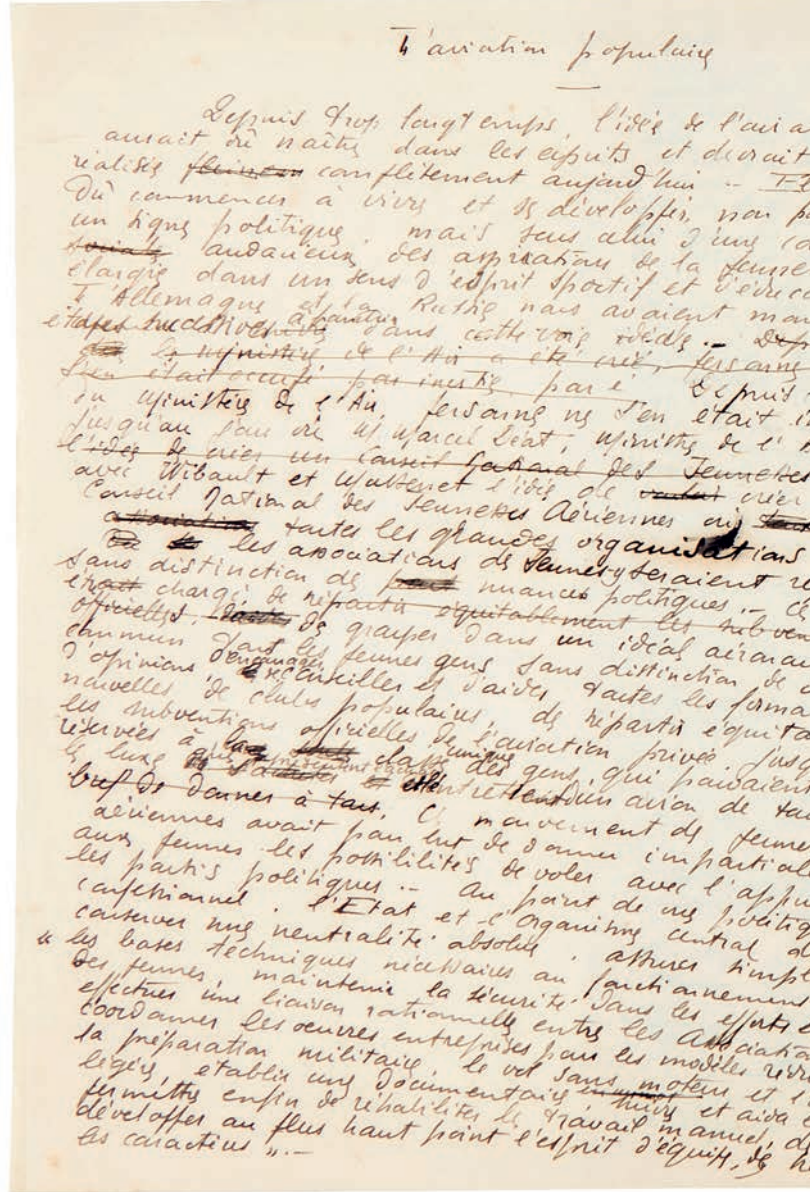 L'aviation populaire
Depuis trop longtemps, l'idée de l'avia
aurait dû naître dans les esprits et devrait
réalisée complètement aujourd'hui --
Dû commencer à vivre et se développer, non p
un signe politique, mais sous celui d'une co
sociale audacieuse des aspirations de la jeune
élargie dans un sens d'esprit sportif et d'éduca
L'Allemagne et la Russie nous avaient mon
étapes successives à franchir dans cette voie idéale. -- Dep
le ministère de l'Air a été créé, personne
s'en était occupé par inertie, par é Depuis
du Ministère de l'Air, personne ne s'en était i
jusqu'au jour où M. Marcel Déat, Ministre de l'A
l'idée de créer un Conseil National des Jeunesses
avec Wibault et Massenet l'idée de vouloir créer
Conseil National des Jeunesses Aériennes où
associations toutes les grandes organisations
les associations de Jeunes y seraient re
sans distinction de nuances politiques. --
était chargé de répartir équitablement les subven
officielles, de grouper dans un idéal aéronau
commun tous les jeunes gens sans distinction de
d'opinions, d'encourager, conseiller et d'aider toutes les forma
nouvelles de clubs populaires, de répartir équita
les subventions officielles de l'aviation privée jusq
réservées à la classe unique des gens qui pouvaient
le luxe entretien d'un avion de tou
but de donner à tous, Ce mouvement de jeunes
aériennes avait pour but de donner impartial
aux jeunes les possibilités de voler avec l'appu
les partis politiques. -- Au point de vue politiq
confessionnel, l'Etat et l'Organisme central d
conserver une neutralité absolue, assurer simpl
" les bases techniques nécessaires au fonctionnement
des jeunes, maintenir la sécurité dans les efforts e
effectuer une liaison rationnelle entre les Association
coordonner les oeuvres entreprises pour les modèles rédu
la préparation militaire, le vol sans moteur et l'
légère, établir une documentaire et aide
permettre enfin de réhabiliter le travail manuel, d
développer au plus haut point l'esprit d'équipe, de
les caractères ". --